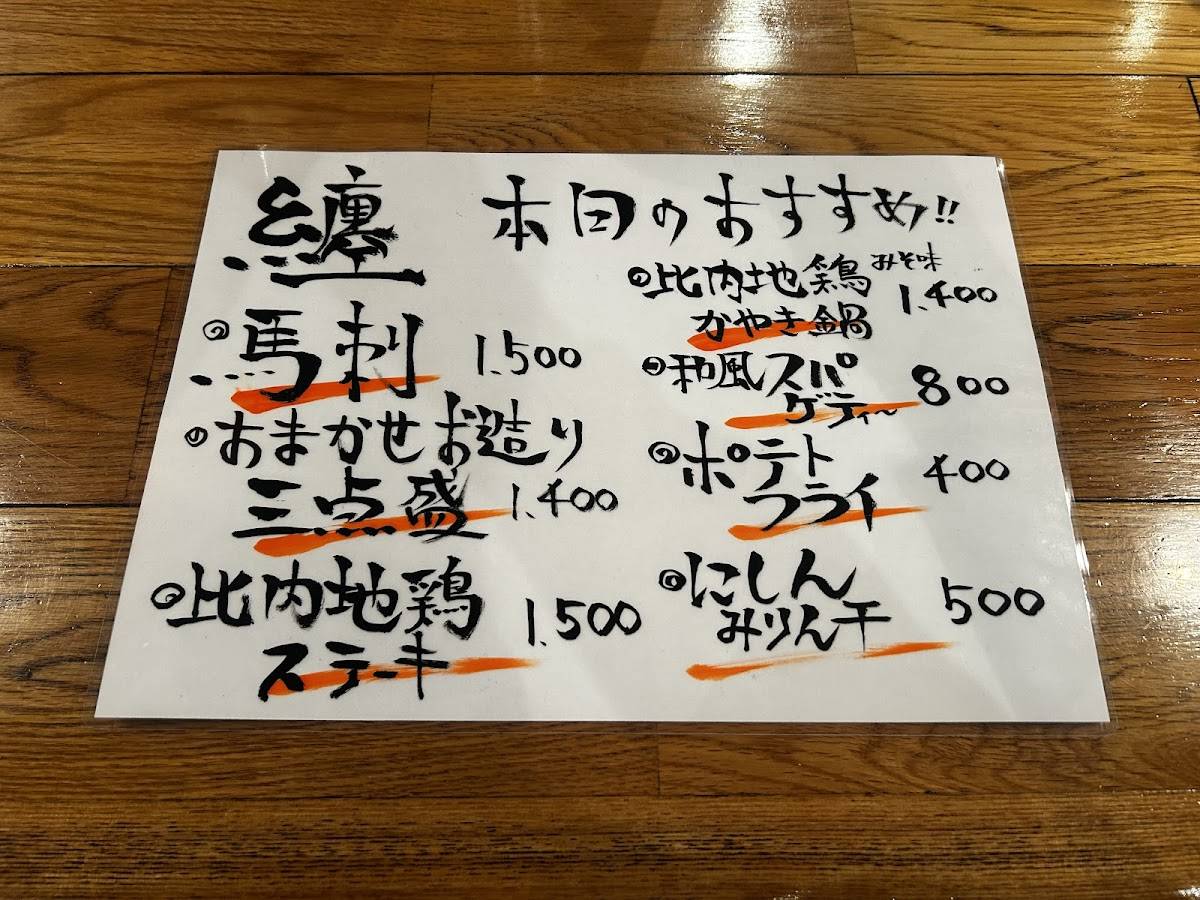 纏 本日のおすすめ!!
馬刺 1,500
おまかせお造り
三点盛 1,400
比内地鶏
ステーキ 1,500
比内地鶏 みそ味
かやき鍋 1,400
和風スパ
ゲティ〜 800
ポテト
フライ 400
にしん
みりん干 500